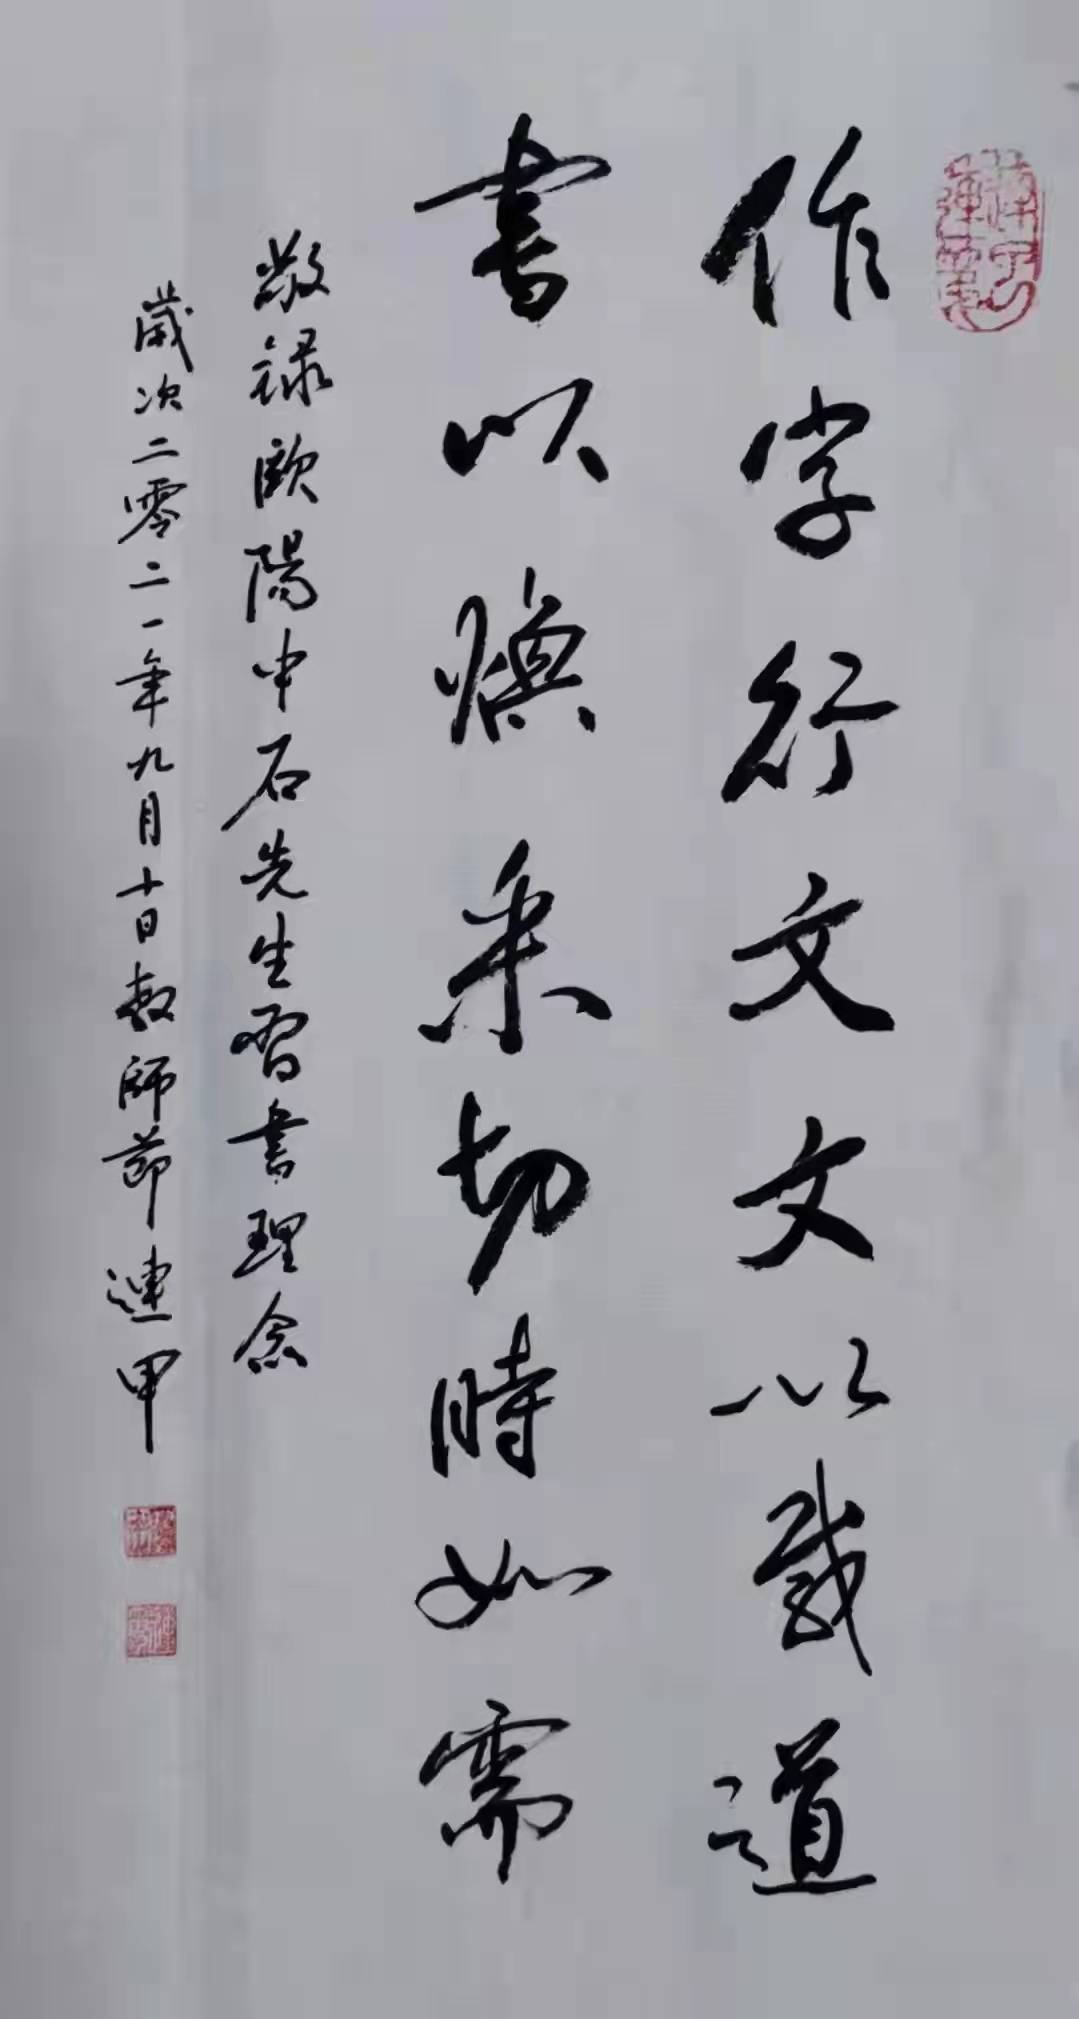 作字行文文以載道
書以煥采切時如需
敬録歐陽中石先生習書理念
歲次二零二一年九月十日教師節連甲